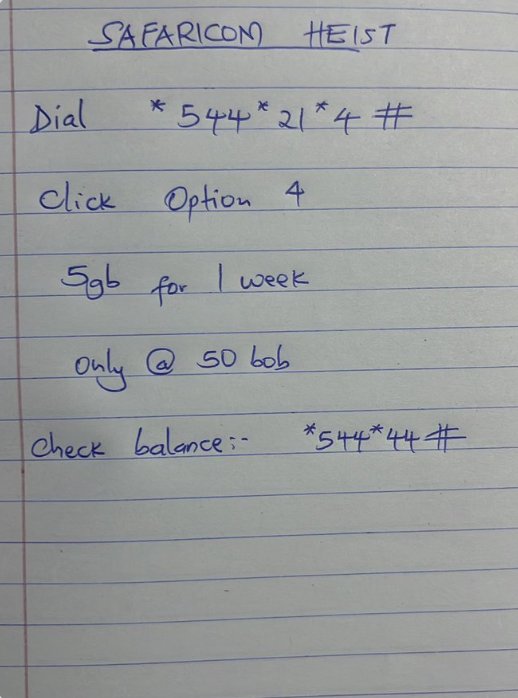 SAFARICOM HEIST
Dial *544*21*4#
Click Option 4
5gb for 1 week
only @ 50 bob
Check balance:- *544*44#